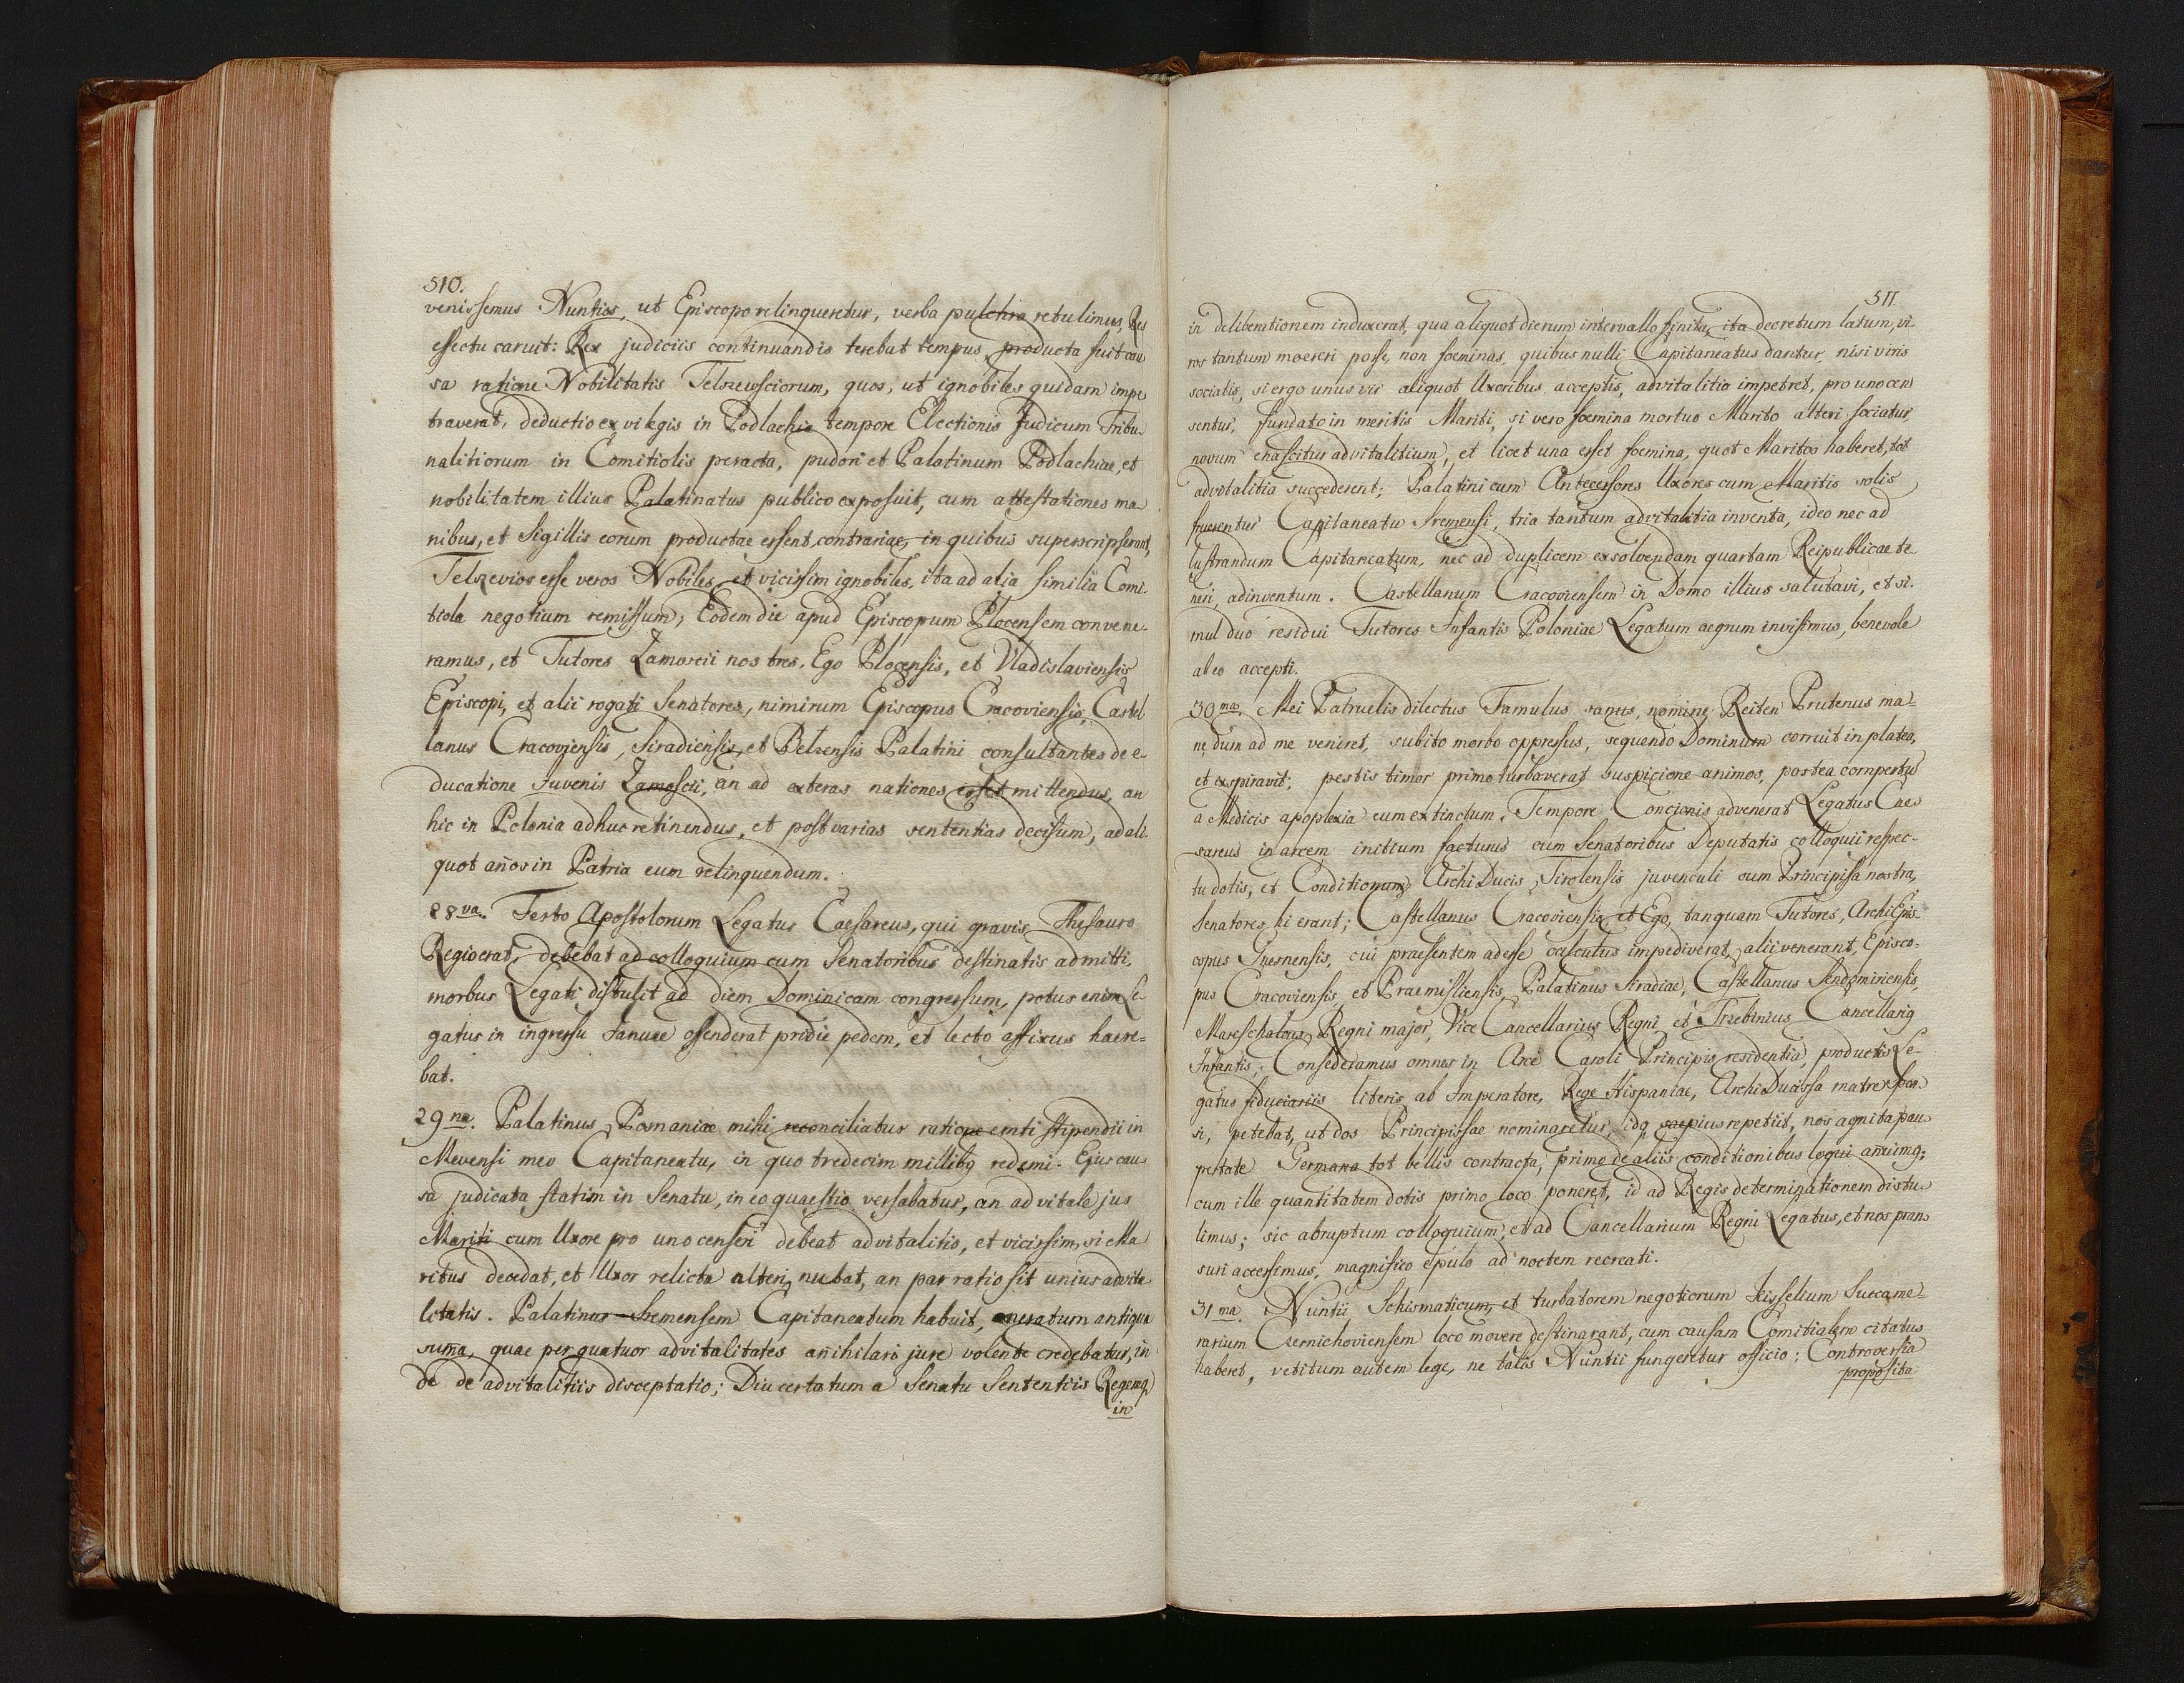 510.
venissemus Nuntios, ut Episcopo relinqueretur, verba pulchra retulimus, Res
effectu caruit: Rex judiciis continuandis terebat tempus, producta fuit cau
sa ratione Nobilitatis Telszewsciorum, quos, ut ignobiles quidam impe
traverat, deductio ex vi legis in Podlachia tempore Electionis Judicum Tribu-
nalitiorum in Comitiolis peracta, pudori et Palatinum Podlachiae, et
nobilitatem illius Palatinatus publico exposuit, cum attestationes ma
nibus, et Sigillis eorum productae essent contrariae, in quibus superscripserant,
Telszevios esse veros Nobiles, et vicissim ignobiles, ita ad alia similia Comi-
tiola negotium remissum, Eodem die apud Episcopum Plocensem convene-
ramus, et Tutores Zamoscii nos tres, Ego Plocensis, et Vladislaviensis
Episcopi, et alii rogati Senatores, nimirum Episcopus Cracoviensis, Castel
lanus Cracoviensis, Siradiensis, et Belzensis Palatini consultantes de e-
ducatione Juvenis Zamoscii, an ad exteras nationes esset mittendus, an
hic in Polonia adhuc retinendus, et post varias sententias decisum, ad ali-
quot años in Patria eum relinquendum.
28va. Festo Apostolorum Legatus Caesareus, qui gravis Thesauro
Regio erat, debebat ad colloquium cum Senatoribus destinatis admitti,
morbus Legati distulit ad diem Dominicam congressum, potus enim Le-
gatus in ingressu Januae offenderat pridie pedem, et lecto affixus haere-
bat.
29na. Palatinus Posnaniae mihi reconciliatur ratione emti stipendii in
Mevensi meo Capitaneatu, in quo tredecim millibq redemi. Ejus cau
sa judicata statim in Senatu, in eo quaestio versabatur, an advitale jus
Mariti cum Uxore pro uno censeri debeat advitalitio, et vicissim, si Ma
ritus decedat, et Uxor relicta alteri nubat, an par ratio sit unius advita
litatis. Palatinus Sremensem Capitaneatum habuit, oneratum antiqua
suma, quae per quatuor advitalitates añihilari jure volente credebatur, in
de de advitalitiis disceptatio; Diu certatum a Senatu Sententiis Regemq
in
511.
in deliberationem induxerat, qua aliquot dierum intervallo finita, ita decretum latum, vi-
ros tantum moereri posse, non foeminas, quibus nulli Capitaneatus dantur, nisi viris
sociatis, si ergo unus vir aliquot Uxoribus acceptis, advitalitia impetret, pro uno cen
sentur, fundato in meritis Mariti, si vero foemina mortuo Marito alteri sociatur,
novum enascitur advitalitium, et licet una esset foemina, quot Maritos haberet, tot
advitalitia succederent; Palatini cum Antecessores Uxores cum Maritis solis
fruerentur Capitaneatu Sremensi, tria tantum advitalitia inventa, ideo nec ad
lustrandum Capitaneatum, nec ad duplicem exsolvendam quartam Reipublicae te
neri, adinventum. Castellanum Cracoviensem in Domo illius salutavi, et si-
mul duo residui Tutores Infantis Poloniae Legatum aegrum invisimus, benevole
ab eo accepti.
30ma. Mei Patruelis dilectus Famulus sanus, nomine Reiten Prutenus ma-
ne, dum ad me veniret, subito morbo oppressus, sequendo Dominum corruit in platea,
et exspiravit; pestis timor primo turbaverat suspicione animos, postea compertus
a Medicis apoplexia eum extinctum. Tempore Concionis advenerat Legatus Cae-
sareus in arcem initium facturus cum Senatoribus Deputatis colloquii respec-
tu dotis, et Conditionum Archi Ducis Tirolensis juvenculi cum Principissa nostra,
Senatores hi erant; Castellanus Cracoviensis et Ego, tanquam Tutores, Archi Epis-
copus Gnesnensis, cui praesentem adesse calculus impediverat, alii venerant, Episco-
pus Cracoviensis et Praemisliensis, Palatinus Siradiae, Castellanus Sendomiriensis,
Mareschalcus Regni major, Vice Cancellarius Regni et Trzebinius Cancellariq
Infantis. Consederamus omnes in Arce Caroli Principis residentia, productis Le-
gatus fiduciariis literis ab Imperatore, Rege Hispaniae, Archi Ducissa matre spon
si, petebat, ut dos Principissae nominaretur, idq saepius repetiit, nos agnita pau
pertate Germana tot bellis contracta, primo de aliis conditionibus loqui añuimq;
cum ille quantitatem dotis primo loco poneret, id ad Regis determinationem distu-
limus; sic abruptum colloquium, et ad Cancellarium Regni Legatus, et nos pran-
suri accessimus, magnifico epulo ad noctem recreati.
31ma. Nuntii Schismaticum, et turbatorem negotiorum Kisselium Succame-
rarium Czernichoviensem loco movere destinarant, cum causam Comitialem citatus
haberet, vetitum autem lege, ne talis Nuntii fungeretur officio; Controversia
proposita